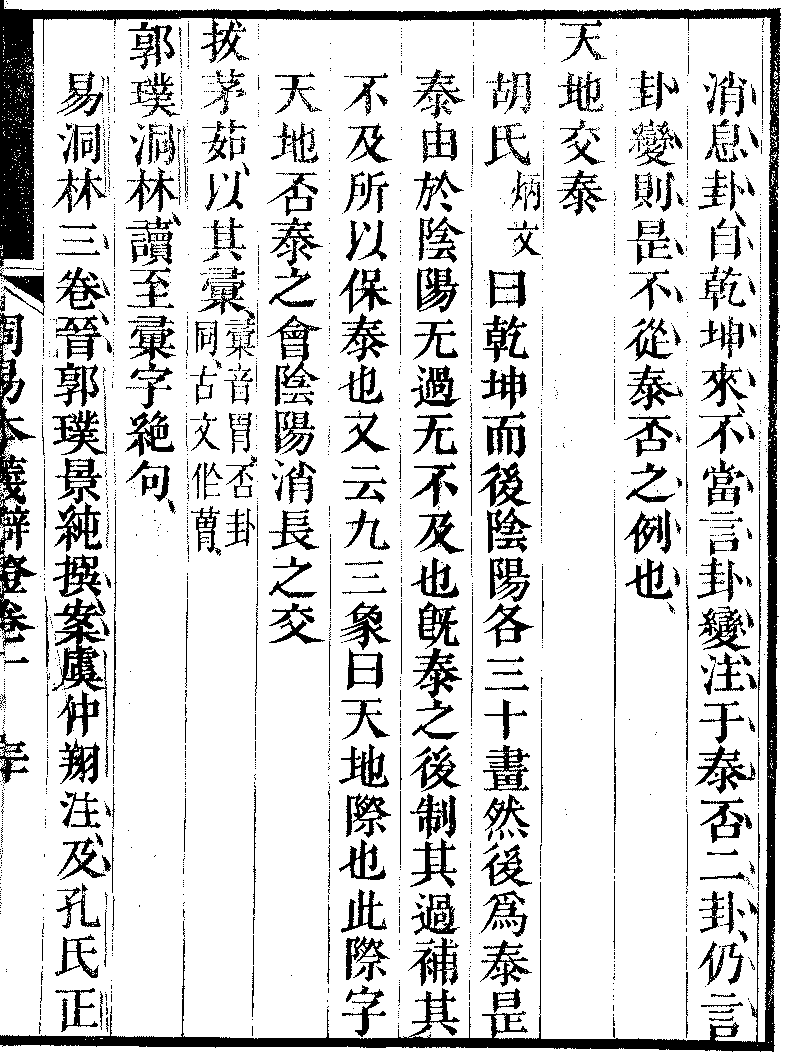 消息卦、自乾坤來、不當言卦變、注于泰否二卦、仍言
卦變、則是不從泰否之例也、
天地交泰
胡氏炳文曰乾坤而後陰陽各三十畫然後爲泰是
泰由於陰陽无過无不及也旣泰之後制其過補其
不及所以保泰也又云九三象曰天地際也此際字
天地否泰之會陰陽消長之交
拔茅茹、以其彙、彙音胃、否卦同、古文作𦳢、
郭璞洞林、讀至彙字絶句、
易洞林三卷、晉郭璞景純撰、案虞仲翔注、及孔氏正
周易本義辯證卷一 三十